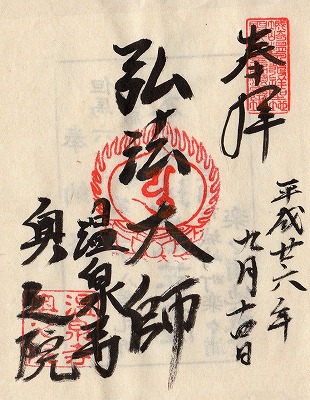 奉拝
平成廿六年
九月十四日
弘法大師
温泉寺
奥之院